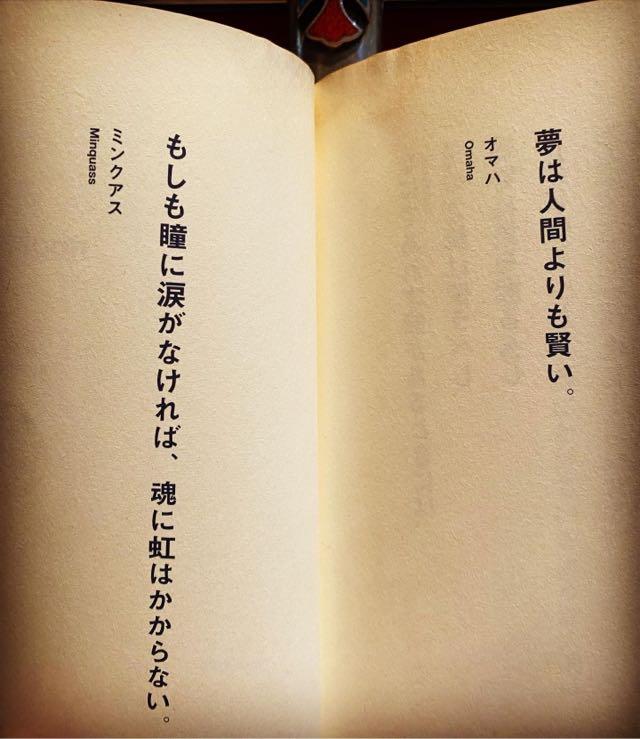 夢は人間よりも賢い。
オマハ
Omaha
もしも瞳に涙がなければ、魂に虹はかからない。
ミンクアス
Minquass